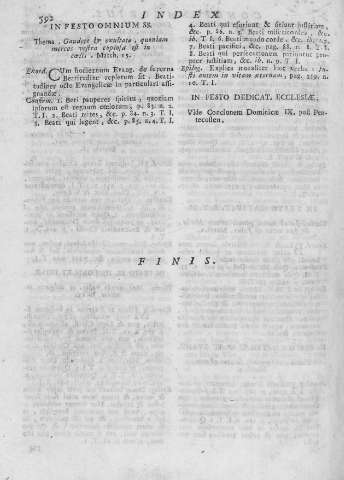 592
INDEX
IN FESTO OMNIUM SS.
Thema. Gaudete & exultate, quoniam
merces vestra copiosa est in
cœli. Matth. 15.
Exord. CUm hodiernum Evang. de superna
Beatitudine copiorum sit. Beati-
tudines octo Evangelicæ in particulari assi-
gnandæ.
Confirm. 1. Beti pauperes spiritu, quoniam
ipsorum est regnum cœlorum, p. 83. n. 2.
T. I. 2. Beati mites, &c. p. 84. n. 3. T. I.
3. Beati qui lugent, &c. p. 85. n. 4. T. I.
4. Beati qui esuriunt & sitiunt justitiam,
&c. p. 86. n. 5. Beati misericordes, &c.
ib. T. I. 6. Beati mundo corde, &c. ib.
7. Beati pacifici, &c. pag. 88. n. 8. T. I.
8. Beati qui persecutionem patiuntur pro-
pter justitiam, &c. ib. n. 9. T. I.
Epilog. Explica moraliter hæc verba: Ju-
sti autem in vitam æternam, pag. 219. n.
10. T. I.
IN FESTO DEDICAT. ECCLESIÆ,
Vide Concionem Dominicæ IX. post Pen-
tecosten.
FINIS.